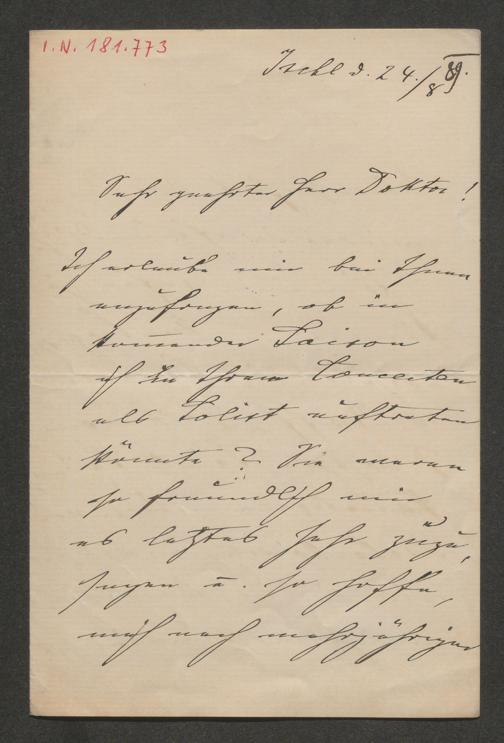 I.N. 181.773
Ischl d. 24./8 89.
Sehr geehrter Herr Doktor!
Ich erlaube mir bei Ihnen
anzufragen, ob in
kommender Saison
ich in Ihren Concerten
als Solist auftreten
könnte? Sie waren
so freundlich mir
es letztes Jahr zuzu,
sagen u. so hoffe,
mich nach mehrjähriger